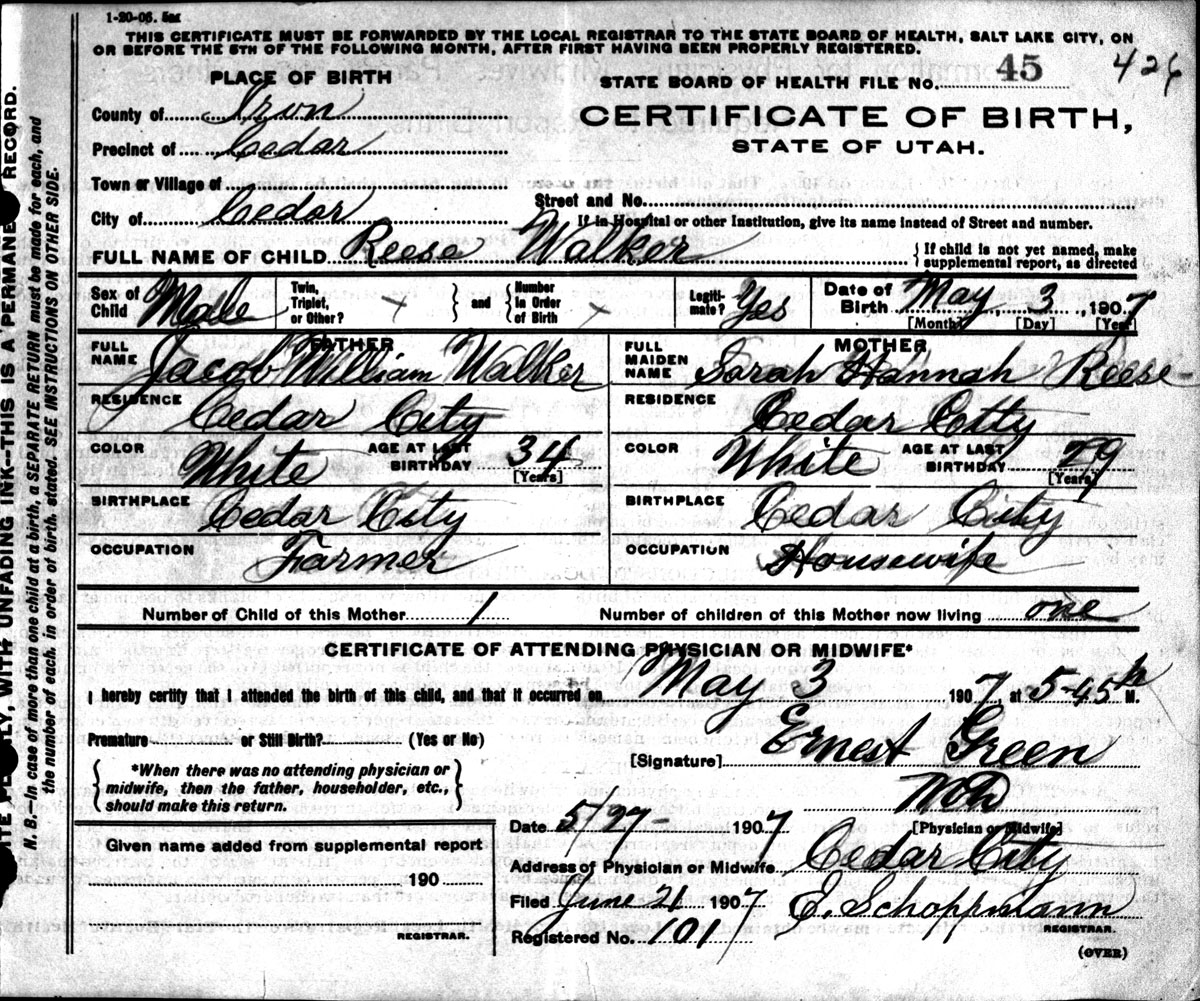 1-20-06. 5m
THIS CERTIFICATE MUST BE FORWARDED BY THE LOCAL REGISTRAR TO THE STATE BOARD OF HEALTH, SALT LAKE CITY, ON
OR BEFORE THE 5TH OF THE FOLLOWING MONTH, AFTER FIRST HAVING BEEN PROPERLY REGISTERED.
PLACE OF BIRTH
STATE BOARD OF HEALTH FILE NO. 45 426
County of Iron
CERTIFICATE OF BIRTH,
Precinct of Cedar
STATE OF UTAH.
Town or Village of
Street and No.
City of Cedar
If in Hospital or other Institution, give its name instead of Street and number.
FULL NAME OF CHILD Reese Walker { If child is not yet named, make
supplemental report, as directed
Sex of Child Male Twin, Triplet, or Other? × } and { Number in Order of Birth × Legiti- mate? Yes Date of Birth May 3, 1907
[Month] [Day] [Year]
FATHER MOTHER
FULL NAME Jacob William Walker FULL MAIDEN NAME Sarah Hannah Reese
RESIDENCE Cedar City RESIDENCE Cedar City
COLOR White AGE AT LAST BIRTHDAY 34 [Years] COLOR White AGE AT LAST BIRTHDAY 29 [Years]
BIRTHPLACE Cedar City BIRTHPLACE Cedar City
OCCUPATION Farmer OCCUPATION Housewife
Number of Child of this Mother 1 Number of children of this Mother now living one
CERTIFICATE OF ATTENDING PHYSICIAN OR MIDWIFE*
I hereby certify that I attended the birth of this child, and that it occurred on May 3 1907, at 5-45 P M.
Premature or Still Birth? (Yes or No)
[Signature] Ernest Green
{ *When there was no attending physician or
midwife, then the father, householder, etc.,
should make this return. }
MD
[Physician or Midwife]
Date 5/27- 1907
Given name added from supplemental report
Address of Physician or Midwife Cedar City
190
Filed June 21 1907 E. Schoppmann
REGISTRAR.
REGISTRAR.
Registered No. 101
(OVER)
WITH UNFADING INK--THIS IS A PERMANE RECORD.
N. B.--In case of more than one child at a birth, a SEPARATE RETURN must be made for each, and
the number of each, in order of birth, stated. SEE INSTRUCTIONS ON OTHER SIDE.